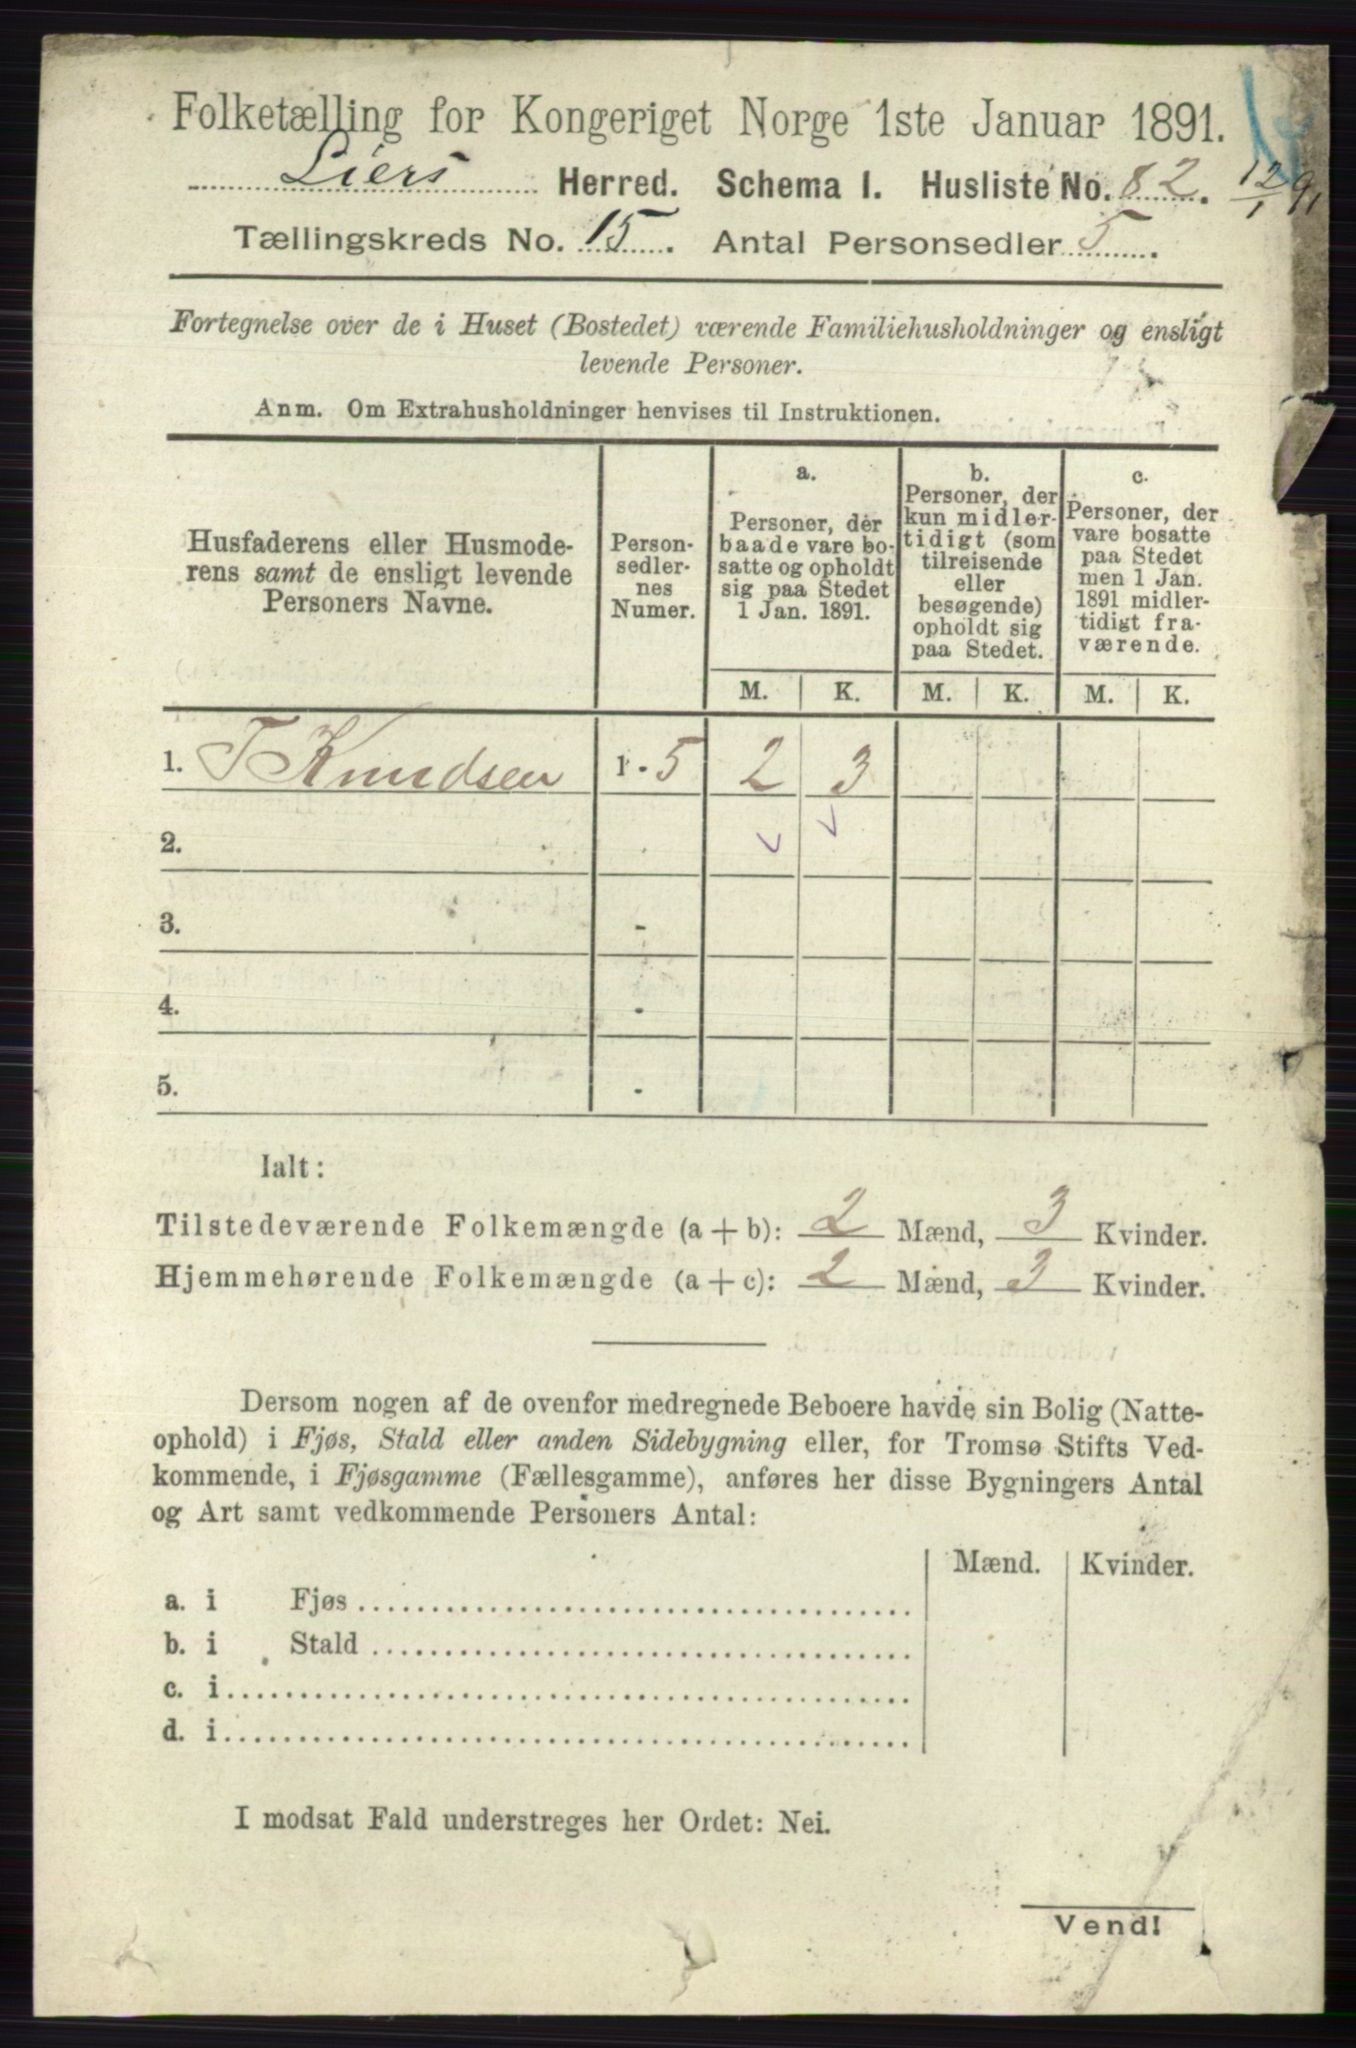 Folketælling for Kongeriget Norge 1ste Januar 1891.
Liers Herred. Schema I. Husliste No. 82. 12/1 91
Tællingskreds No. 15. Antal Personsedler 5.
Fortegnelse over de i Huset (Bostedet) værende Familiehusholdninger og ensligt
levende Personer.
Anm. Om Extrahusholdninger henvises til Instruktionen.
Husfaderens eller Husmode-
rens samt de ensligt levende
Personers Navne.
Person-
sedler-
nes
Numer.
a.
Personer, der
baade vare bo-
satte og opholdt
sig paa Stedet
1 Jan. 1891.
b.
Personer, der
kun midler-
tidigt (som
tilreisende
eller
besøgende)
opholdt sig
paa Stedet.
c.
Personer, der
vare bosatte
paa Stedet
men 1 Jan.
1891 midler-
tidigt fra-
værende.
M. K. M. K. M. K.
1. T Knudsen 1-5 2 3
2.
3. -
4. -
5. -
Ialt:
Tilstedeværende Folkemængde (a + b): 2 Mænd, 3 Kvinder.
Hjemmehørende Folkemængde (a + c): 2 Mænd, 3 Kvinder.
Dersom nogen af de ovenfor medregnede Beboere havde sin Bolig (Natte-
ophold) i Fjøs, Stald eller anden Sidebygning eller, for Tromsø Stifts Ved-
kommende, i Fjøsgamme (Fællesgamme), anføres her disse Bygningers Antal
og Art samt vedkommende Personers Antal:
Mænd. Kvinder.
a. i Fjøs
b. i Stald
c. i
d. i
I modsat Fald understreges her Ordet: Nei.
Vend!